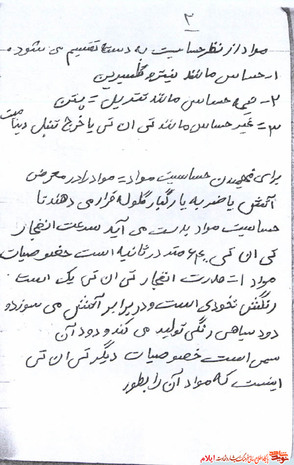 ۲
مواد از نظر حساسیت به ۳ دسته تقسیم می شود.
۱- حساس مانند نیتروگلیسیرین
۲- نیمه حساس مانند تتریل - پتن
۳- غیر حساس مانند تی ان تی یا خرج تنبل دینامیت
برای فهمیدن حساسیت مواد - مواد را در معرض
آتش یا ضربه یا رگبار گلوله قرار می دهند تا
حساسیت مواد بدست می آید سرعت انفجار
تی ان تی ۶۹۰۰ متر در ثانیه است خصوصیات
مواد - قدرت انفجار تی ان تی یک است
رنگش نخودی است و در برابر آتش می سوزد و
دود سیاهی رنگی تولید می کند و دود آن
سمی است خصوصیات دیگر تی ان تی
اینست که مواد آن را بطور